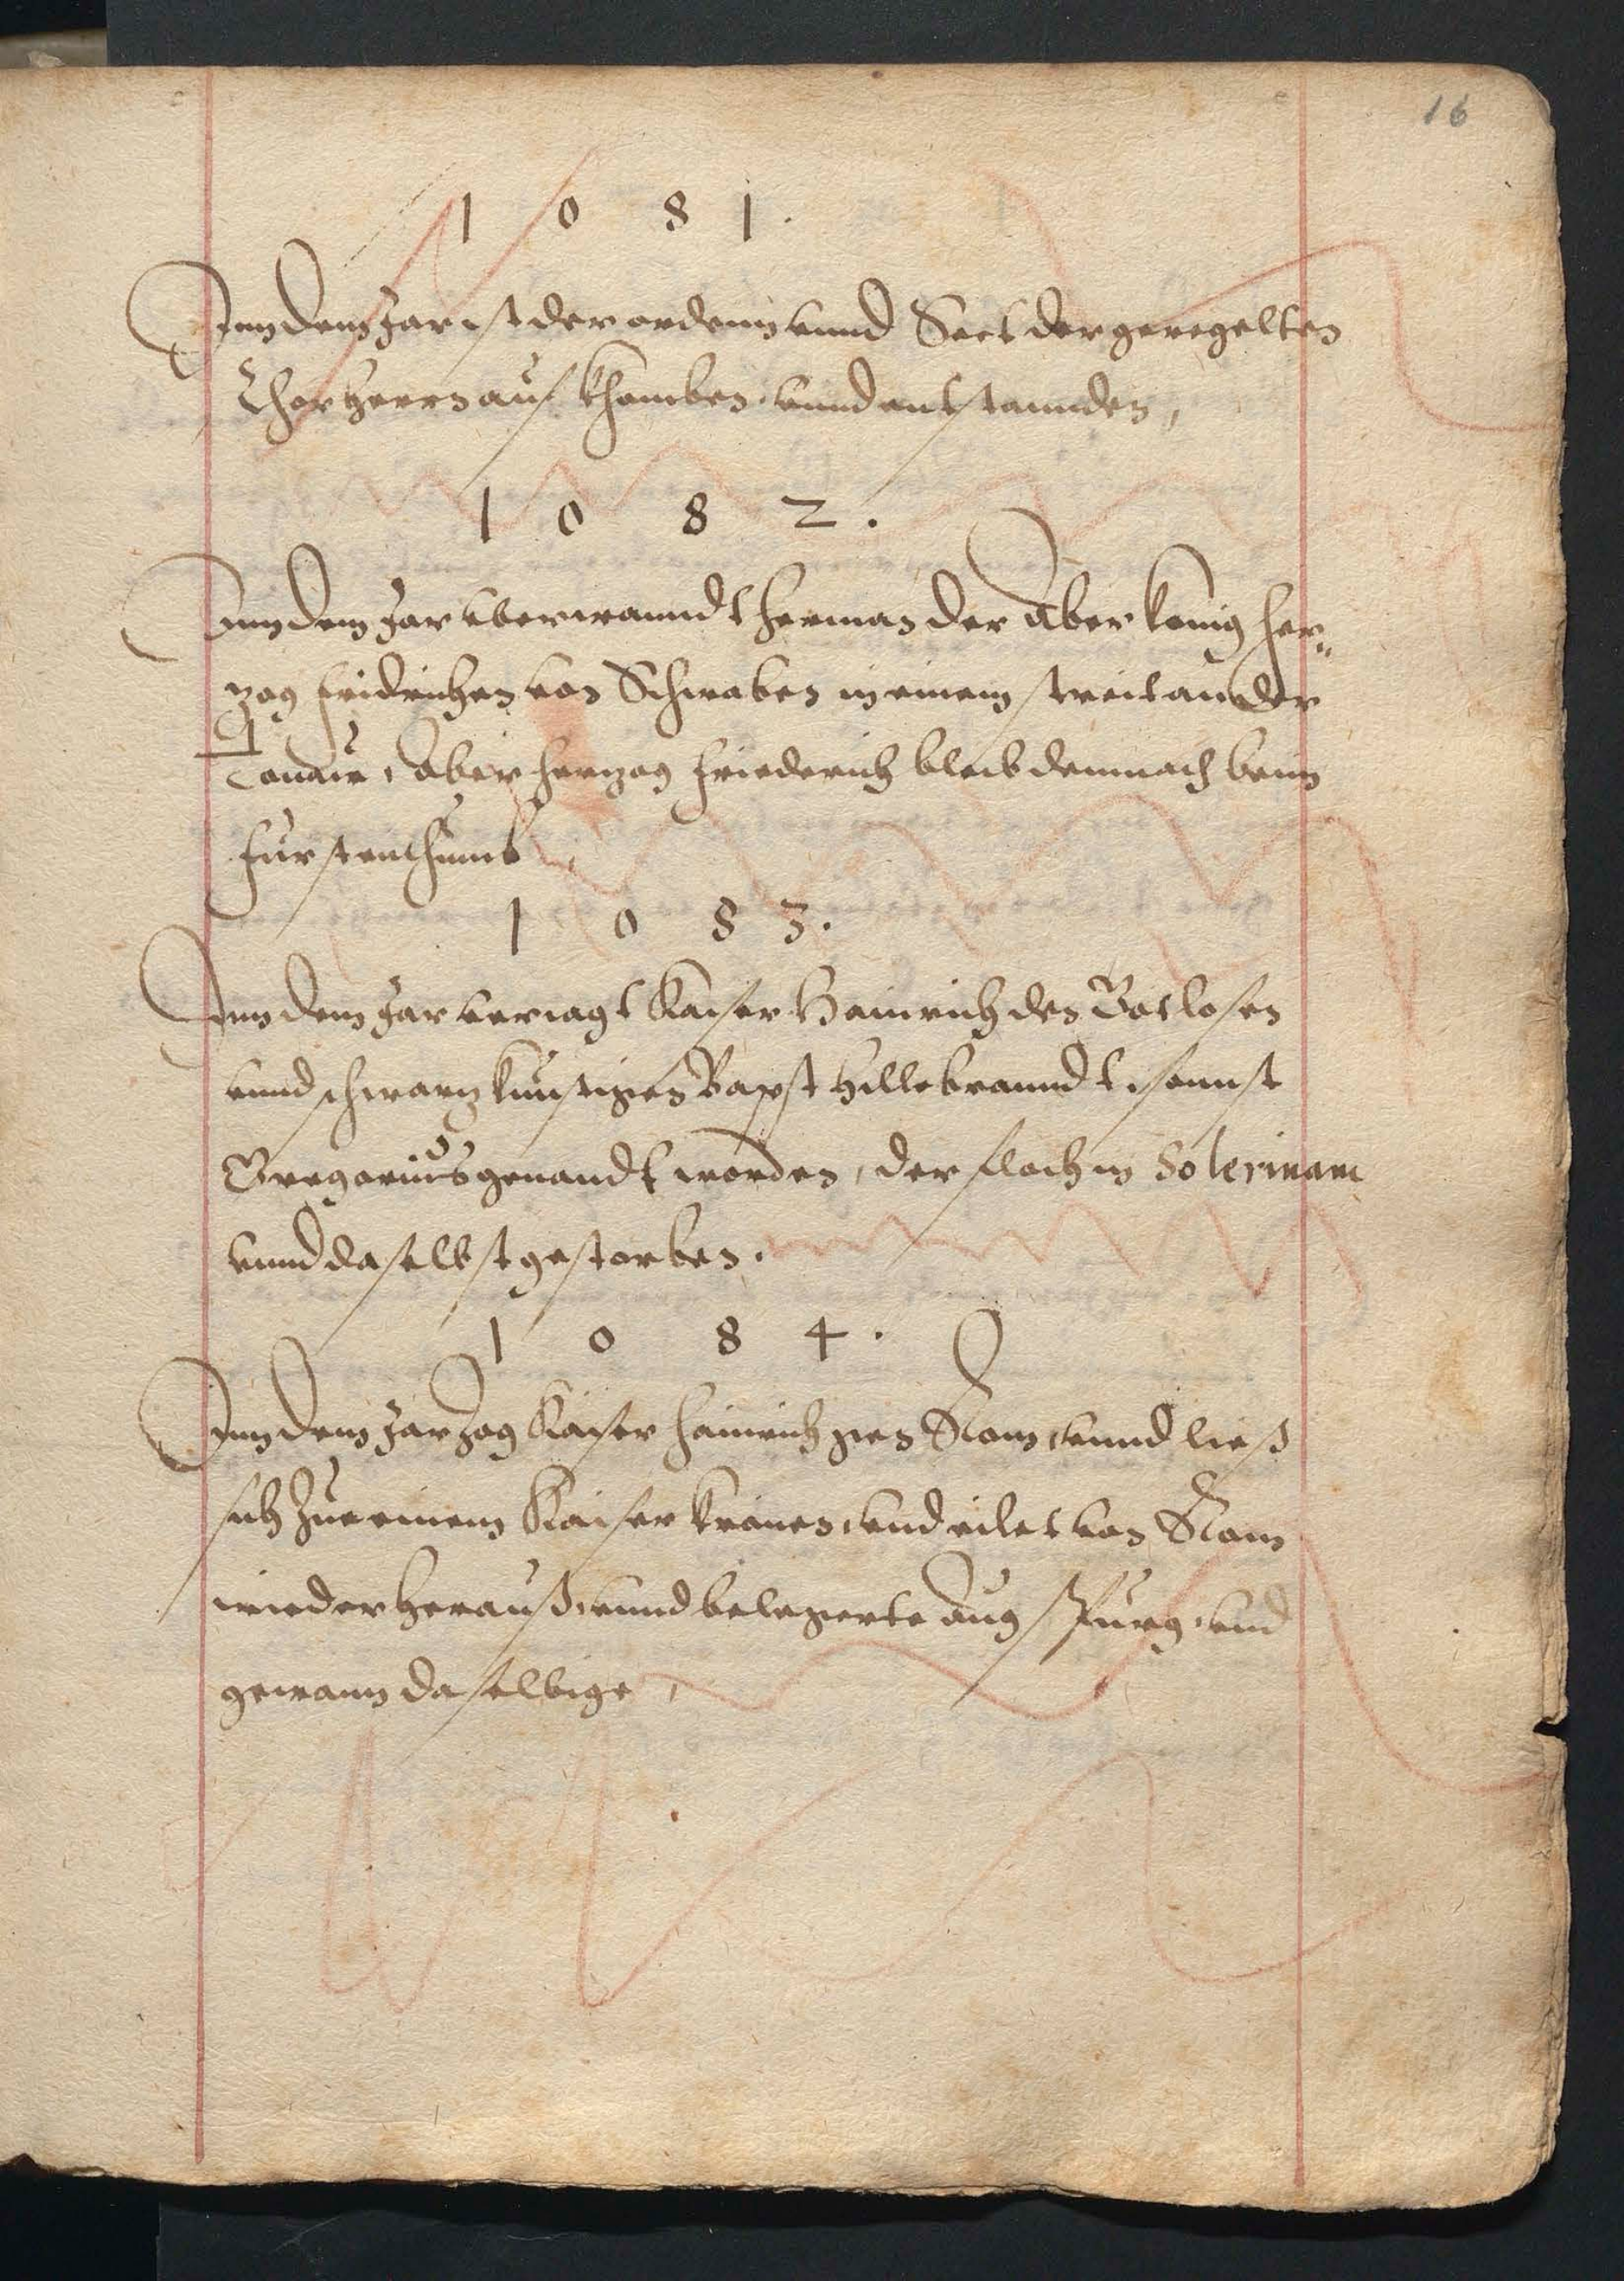 16
1 0 8 1.
Inn dem Jar ist der ordenn vnnd Sect der geregelten
Chorherrn auf khomben, vnnd entstannden,
1 0 8 2.
Inn dem Jar vberwanndt herman der Aber konig her„
zog fridrichen von Schwaben in einem streit an der
Tonaw, Aber herzog friederich bleib dennnach beim
furstenthumb,
1 0 8 3.
Inn dem Jar veriagt Kaiser Hainrich den Gotlosen
vnnd schwarzkunstigen Bapst Hillebranndt, sonnst
Gregorius genandt worden, der floch in Solerinam
vnnd daselbst gestorben.
1 0 8 4.
Inn dem Jar zog Kaiser Hainrich gen Rom, vnnd ließ
sich zue einem Kaiser krönen, vnd eilet von Rom
wieder herauß, vnnd belegerte Augspurg, vnd
gewann daselbige,